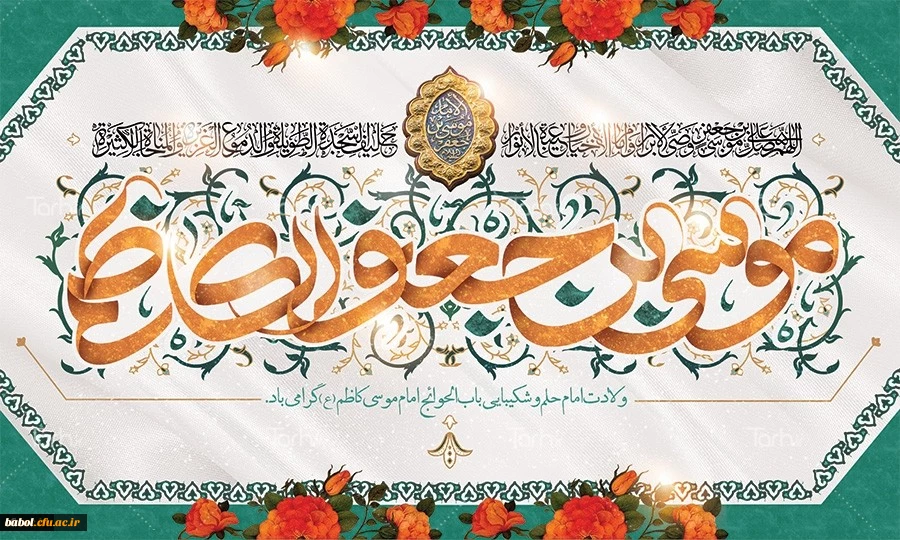 الإمام
موسی بن
جعفر
اللهم صل علی موسی بن جعفر وصی الأبرار و إمام الأخیار و عیبة الأنوار
حلیف السجدة الطویلة و الدموع الغزیرة و المناجاة الکثیرة
موسی بن جعفر الکاظم
ولادت امام حلم و شکیبایی باب الحوائج امام موسی کاظم (ع) گرامی باد.
babol.cfu.ac.ir